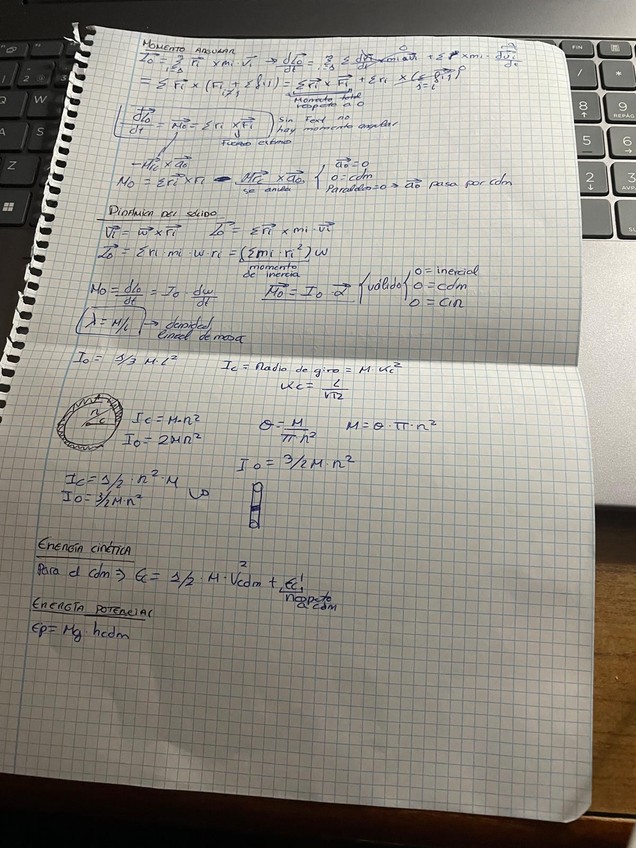 MOMENTO ANGULAR
Lo = Σ ri × mi · vi → dLo/dt = Σ dri/dt × mi vi + Σ ri × mi · dvi/dt
0
= Σ ri × (Fi + Σ fij) = Σ ri × Fi + Σ ri × (Σ fij)
Momento total
respecto a O
dLo/dt = Mo = Σ ri × Fi
Sin Fext no
hay momento angular
Fuerza externa
- M rc × ao
Mo = Σ ri × Fi - M rc × ao
se anula
ao = 0
O = cdm
Paralelos = 0 → ao pasa por cdm
DINÁMICA DEL SÓLIDO
vi = w × ri Lo = Σ ri × mi · vi
Lo = Σ ri · mi · w · ri = (Σ mi · ri²) w
momento
de inercia
Mo = dLo/dt = Io · dw/dt Mo = Io · α válido
O = inercial
O = cdm
O = CIR
λ = M/L → densidad
lineal de masa
Io = 1/3 M · L² Ic = Radio de giro = M · Kc²
Kc = L/√12
R
c
Ic = M · R²
Io = 2MR²
σ = M/π · R² M = σ · π · R²
Io = 3/2 M · R²
Ic = 1/2 · R² · M
Io = 3/2 M · R²
ENERGÍA CINÉTICA
Para el cdm ⇒ Ec = 1/2 · M · Vcdm² + Ec'
respecto
a cdm
ENERGÍA POTENCIAL
Ep = Mg · hcdm
FIN
IMPR
8
9
REPÁG
2
3
AVPÁG